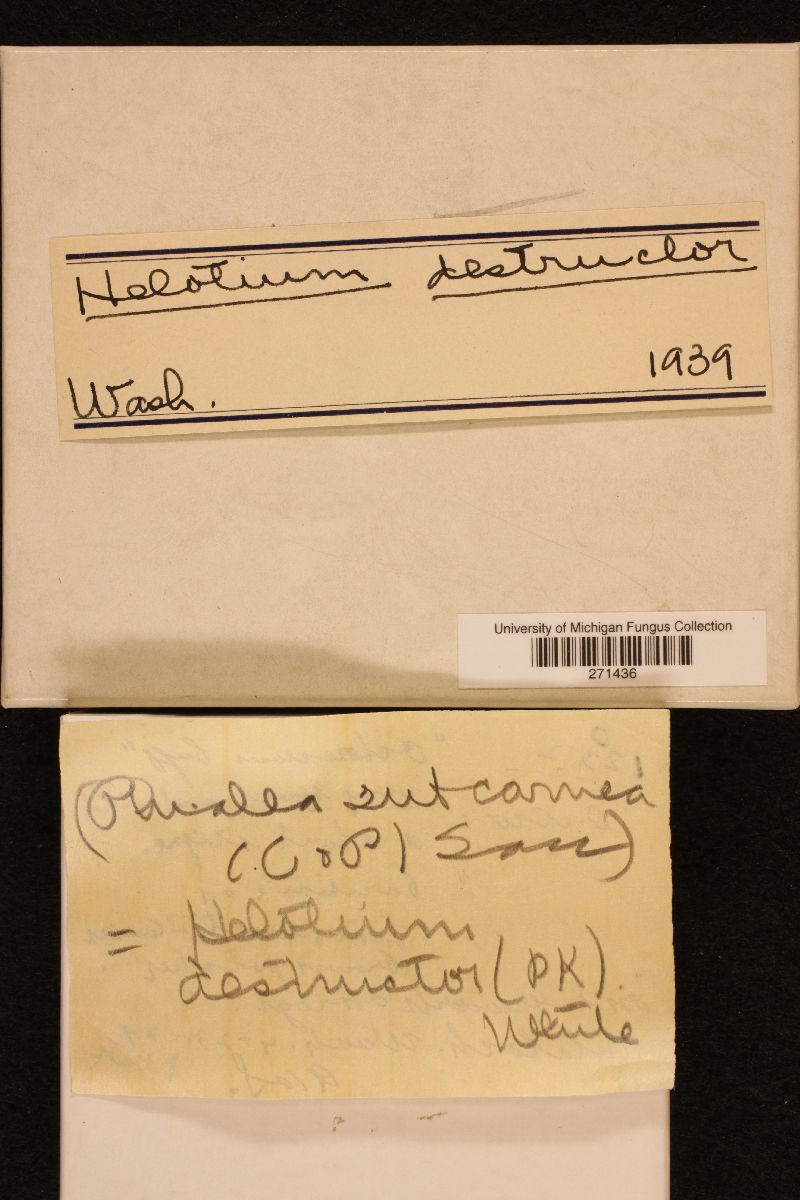 Helotium destructor
Wash. 1939
University of Michigan Fungus Collection
271436
(Phialea subcarnea
(C&P) Sacc)
= Helotium
destructor (PK).
White